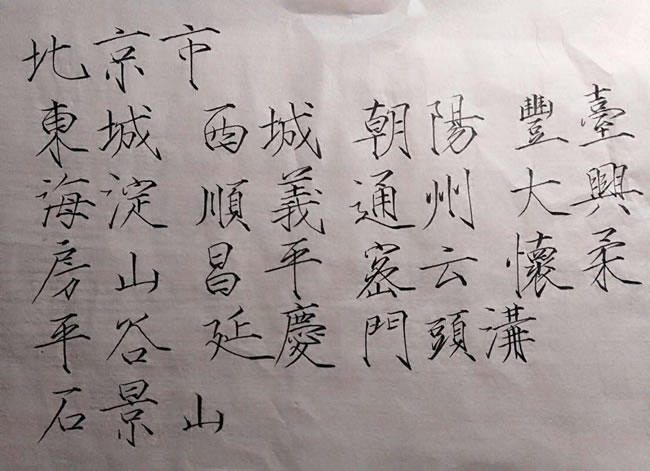 北京市
東城 西城 朝陽 豐臺
海淀 順義 通州 大興
房山 昌平 密云 懷柔
平谷 延慶 門頭溝
石景山